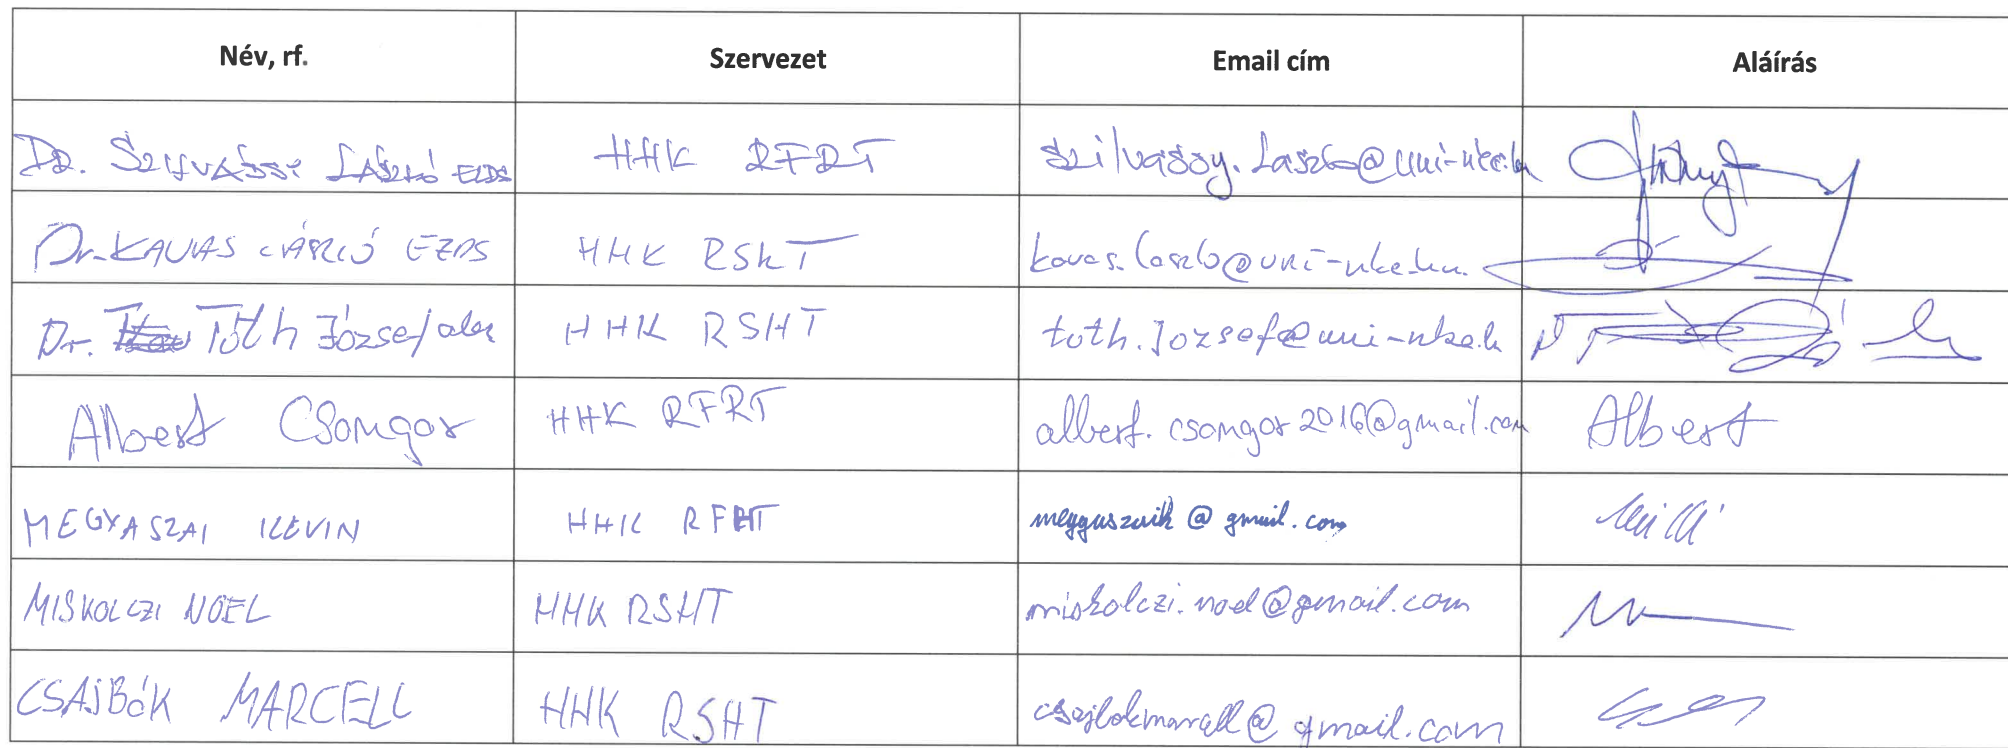 Név, rf. Szervezet Email cím Aláírás
Dr. Szilvássy László ezds HHK RFRT szilvassy.laszlo@uni-nke.hu
Dr. KAVAS LÁSZLÓ EZDS HHK RSHT kavas.laszlo@uni-nke.hu
Dr. Tóth József alez HHK RSHT toth.jozsef@uni-nke.hu
Albert Csongor HHK RFRT albert.csongor2016@gmail.com Albert
MEGYASZAI KEVIN HHK megyaszaik@gmail.com
MISKOLCZI NOEL HHK RSHT miskolczi.noel@gmail.com
CSAJBÓK MARCELL HHK RSHT csajbokmarcell@gmail.com